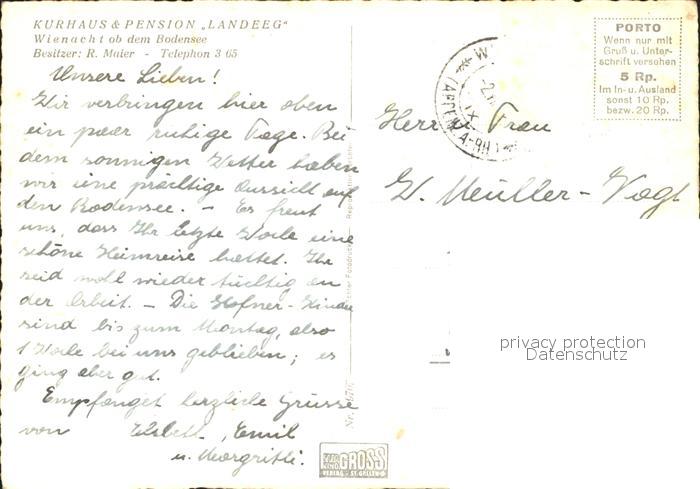 KURHAUS & PENSION „LANDEGG“
Wienacht ob dem Bodensee
Besitzer: R. Maier - Telephon 3 65
Unsere Lieben!
Wir verbringen hier oben
ein paar ruhige Tage. Bei
dem sonnigen Wetter haben
wir eine prächtige Aussicht auf
den Bodensee. – Es freut
uns, dass Ihr letzte Woche eine
schöne Heimreise hattet. Ihr
seid wohl wieder tüchtig an
der Arbeit. – Die Hofner-Kinder
sind bis zum Montag, also
1 Woche bei uns geblieben; es
ging aber gut.
Empfanget herzliche Grüsse
von Elsbeth, Emil
u. Margritli.
PORTO
Wenn nur mit
Gruß u. Unter-
schrift versehen
5 Rp.
Im In- u. Ausland
sonst 10 Rp.
bezw. 20 Rp.
Herr u. Frau
W. Müller-Vogt
privacy protection
Datenschutz
GROSS
VERLAG - ST. GALLEN